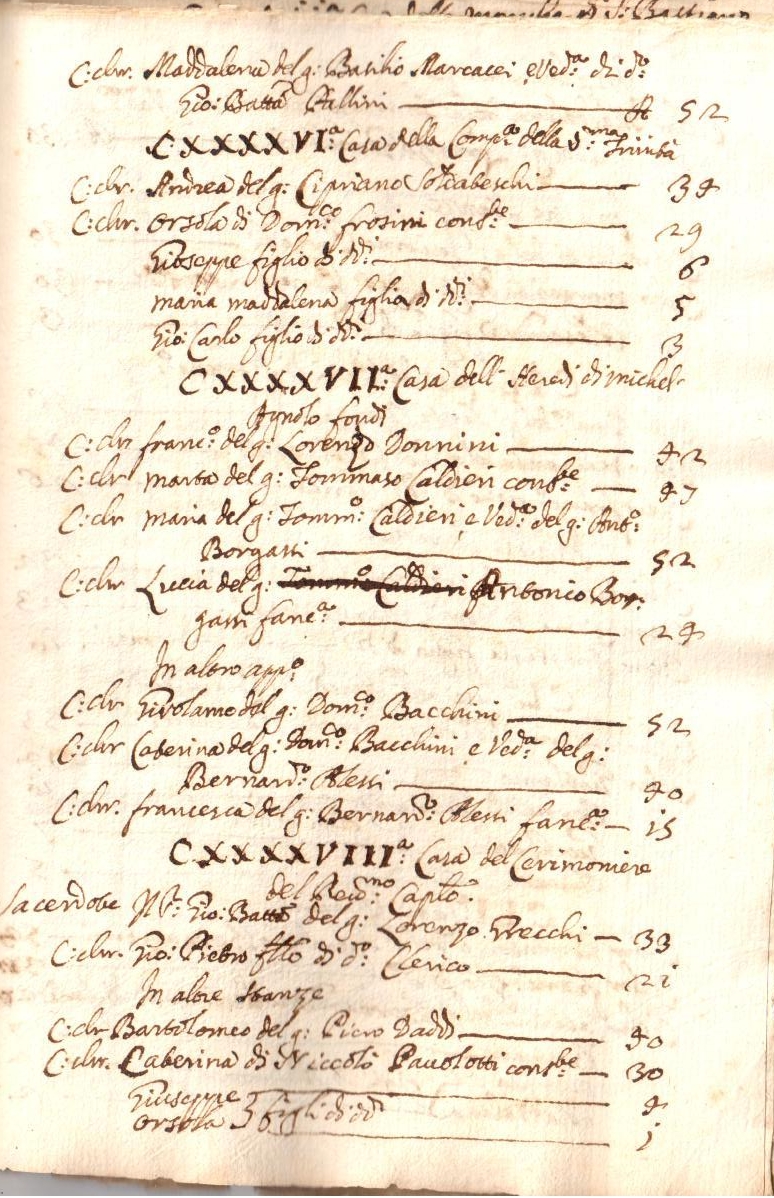 C: chr. Maddalena del q: Basilio Marcacci e Ved:ª di d:º
Gio: Batta Pallini 52
CXXXXVI:ª Casa della Comp:ª della S:ma Trinità
C: chr. Andrea del q: Cipriano 34
C: chr. Orsola di Dom:co frosini cons:te 29
Giuseppe figlio di dd:i 6
maria maddalena figlia di dd:i 5
Gio: Carlo figlio di dd:i 3
CXXXXVII:ª Casa dell' Heredi di Michel-
Agnolo fondi
C: chr franc:º del q: Lorenzo Donnini 42
C: chr marta del q: Tommaso Caldieri cons:te 47
C: chr maria del q: Tomm:º Caldieri, e Ved:ª del q: Ant:º
Borgassi 52
C: chr Luccia del q: Tomm:º Caldieri Antonio Bor-
gassi fanc:ª 24
In altro app:º
C: chr Girolamo del q: Dom:co Bacchini 52
C: chr Caterina del q: Dom:co Bacchini e Ved:ª del q:
Bernard:º Alessi 40
C: chr. francesca del q: Bernard:º Alessi fanc:ª 15
CXXXXVIII:ª Casa del Cerimoniere
del Re:mo Caplo:
sacerdote Gio: Batta del q: Lorenzo Grecchi 33
C: chr. Gio: Pietro fllo di d:º Clerico 21
In altre stanze
C: chr Bartolomeo del q: Piero Daddi 40
C: chr. Caterina di Niccolò Pauolotti cons:te 30
Giuseppe 4
Orsola } figli di dd:i 1